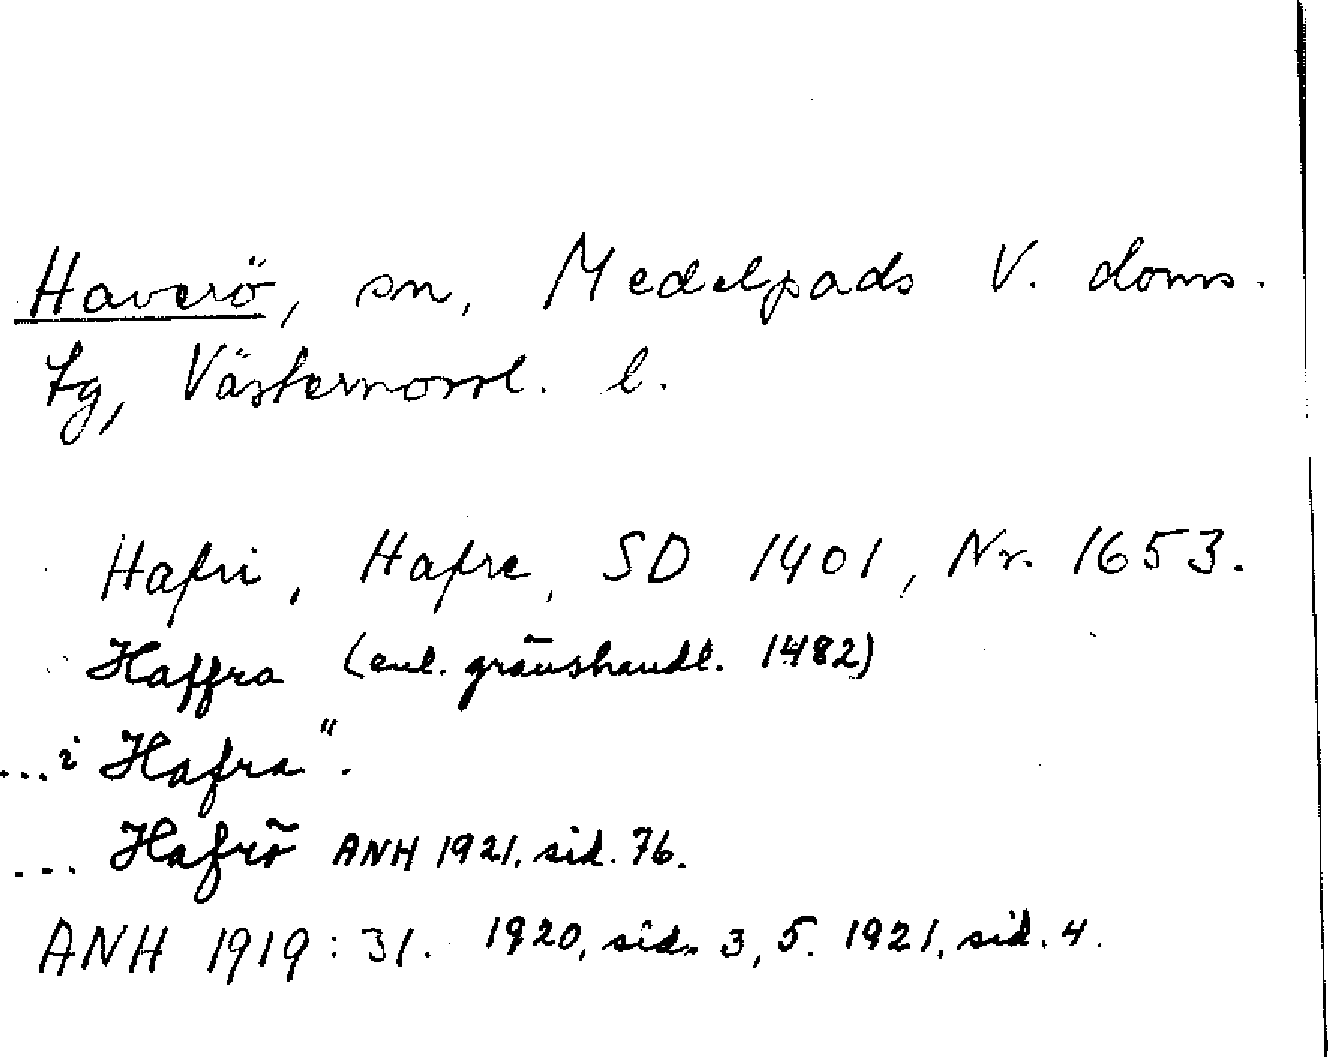 Haverö, sn, Medelpads V. doms.
tg, Västernorrl. l.
Hafri, Hafre, SD 1401, Nr. 1653.
Haffra (enl. gränshandl. 1482)
... i Hafra".
... Hafrö ANH 1921, sid. 76.
ANH 1919: 31. 1920, sid. 3, 5. 1921, sid. 4.